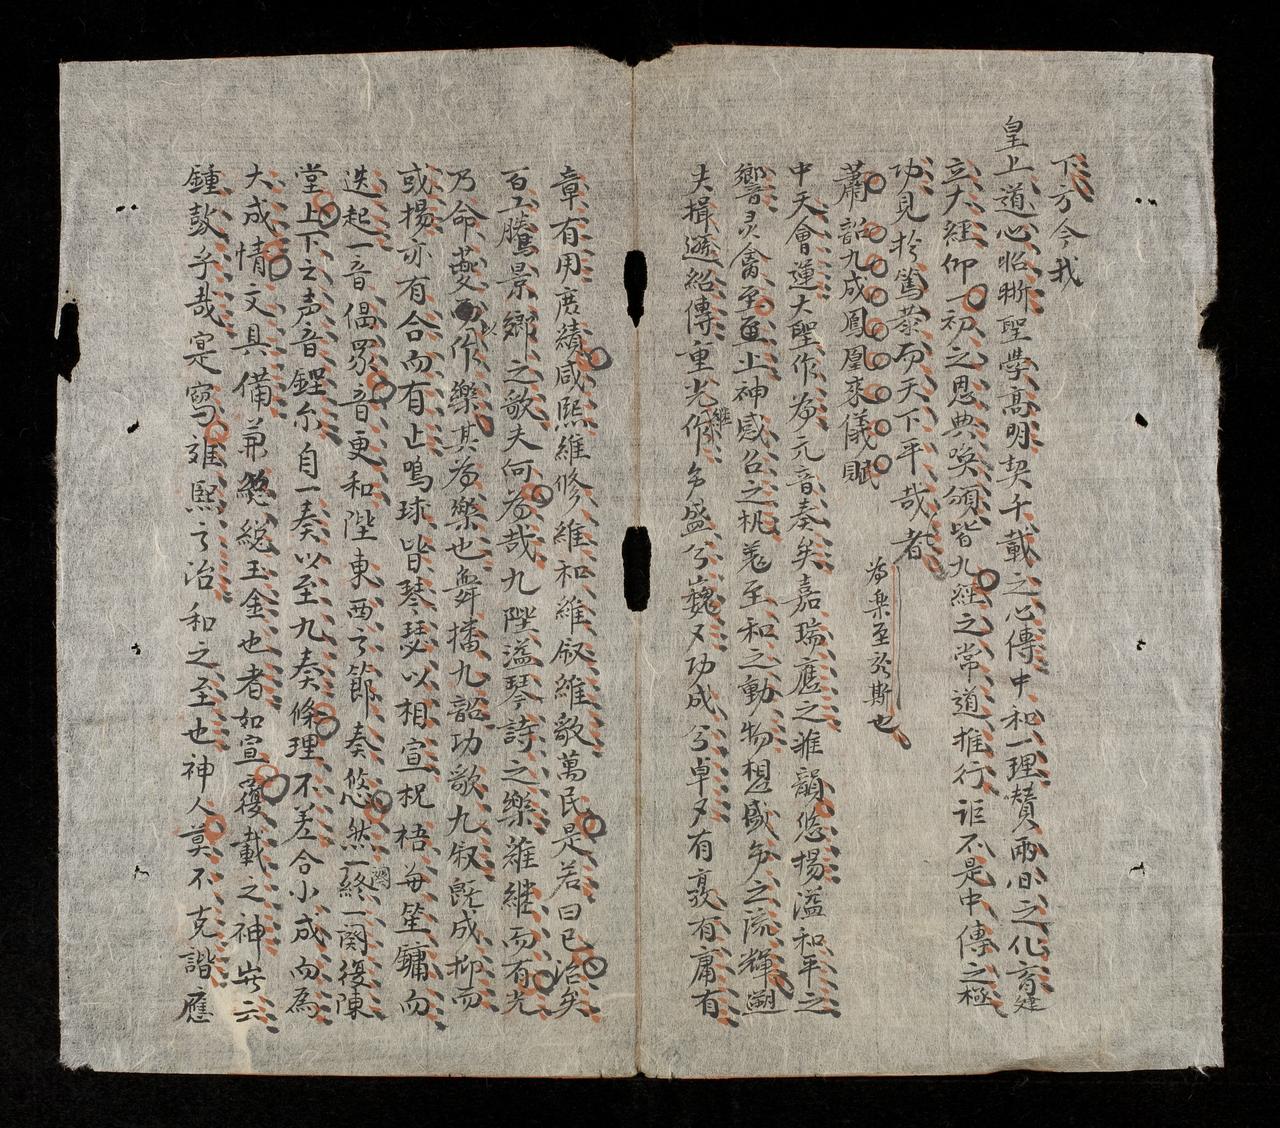 下方今我
皇上道心昭晣聖學髙明契千載之心傳中和一理贊兩间之化育建
立大經仰一初之恩典喚頒皆九經之常道推行詎不是中傳之極
功見於篤恭而天下平哉者
為樂至於斯也
蕭韶九成鳳凰來儀賦
中天會蓮大聖作為元音奏矣嘉瑞應之雅韻悠揚溢和平之
響灵禽至止神感召之机羌至和之動物想盛多之流輝遡
夫揖遜紹傳重光継作多盛兮巍夕功成兮卓夕有亮有庸有
章有用庶績咸熙維修維和維叙維歌萬民是若曰已治矣
百工騰景郷之歌夫何為哉九陛溢琴詩之樂雖継而有光
乃命夔以作樂其為樂也舞播九韶功歌九叙既成抑而
或揚亦有合而有止鳴球皆琴瑟以相宣柷梧每笙鏞而
迭起一音倡眾音更和陛東西之節奏悠然一終一闋復陳
堂上下之声音鏗尔自一奏以至九奏條理不差合小成而為
大成情文具備苐総綂玉金也者如宣覆載之神
鍾鼓乎哉寔寫雍熙之治和之至也神人莫不克諧應